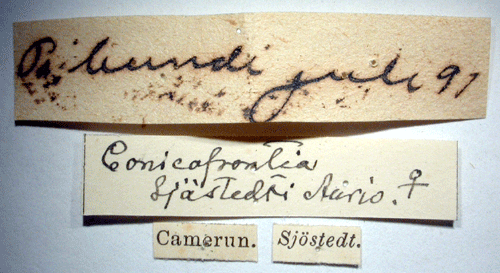 Bibundi juli 91
Conicofrontia
Sjöstedti Auriv. ♀
Camerun. Sjöstedt.